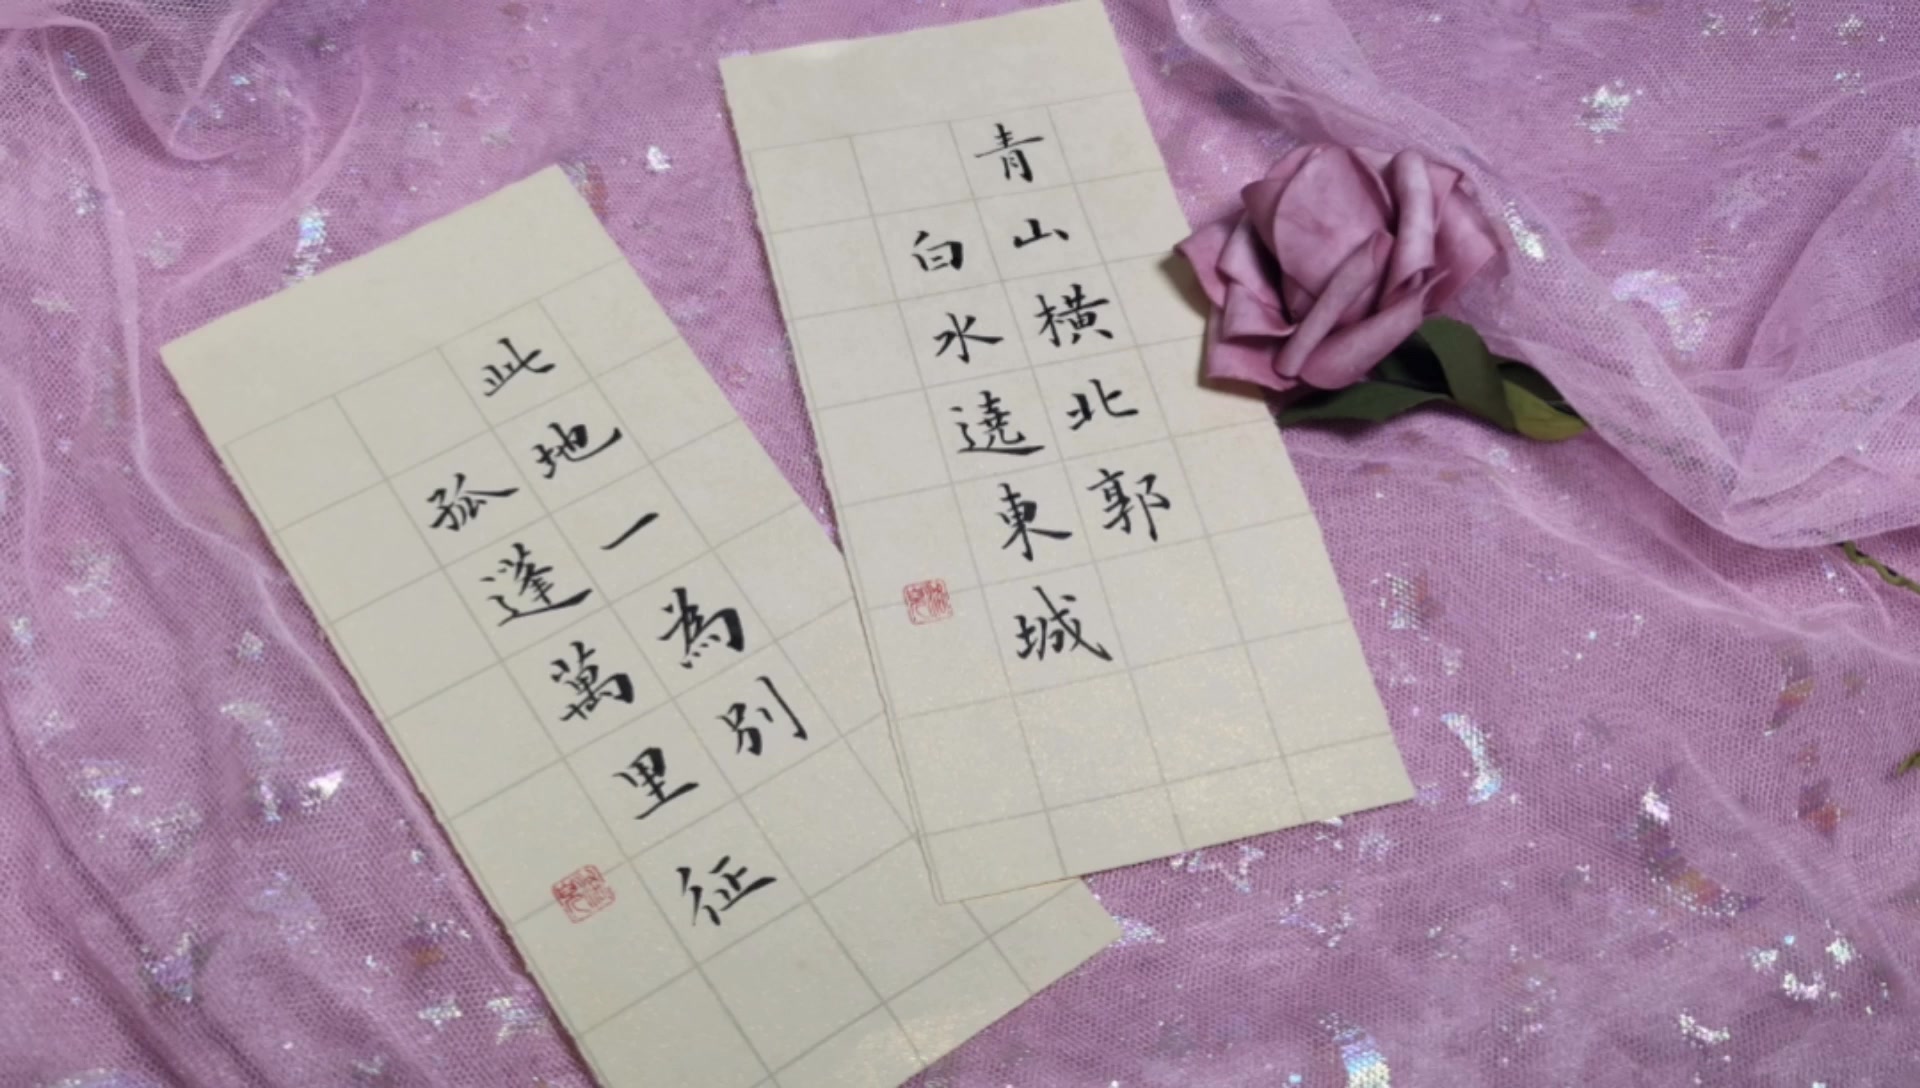 青山橫北郭
白水遶東城
此地一為別
孤蓬萬里征